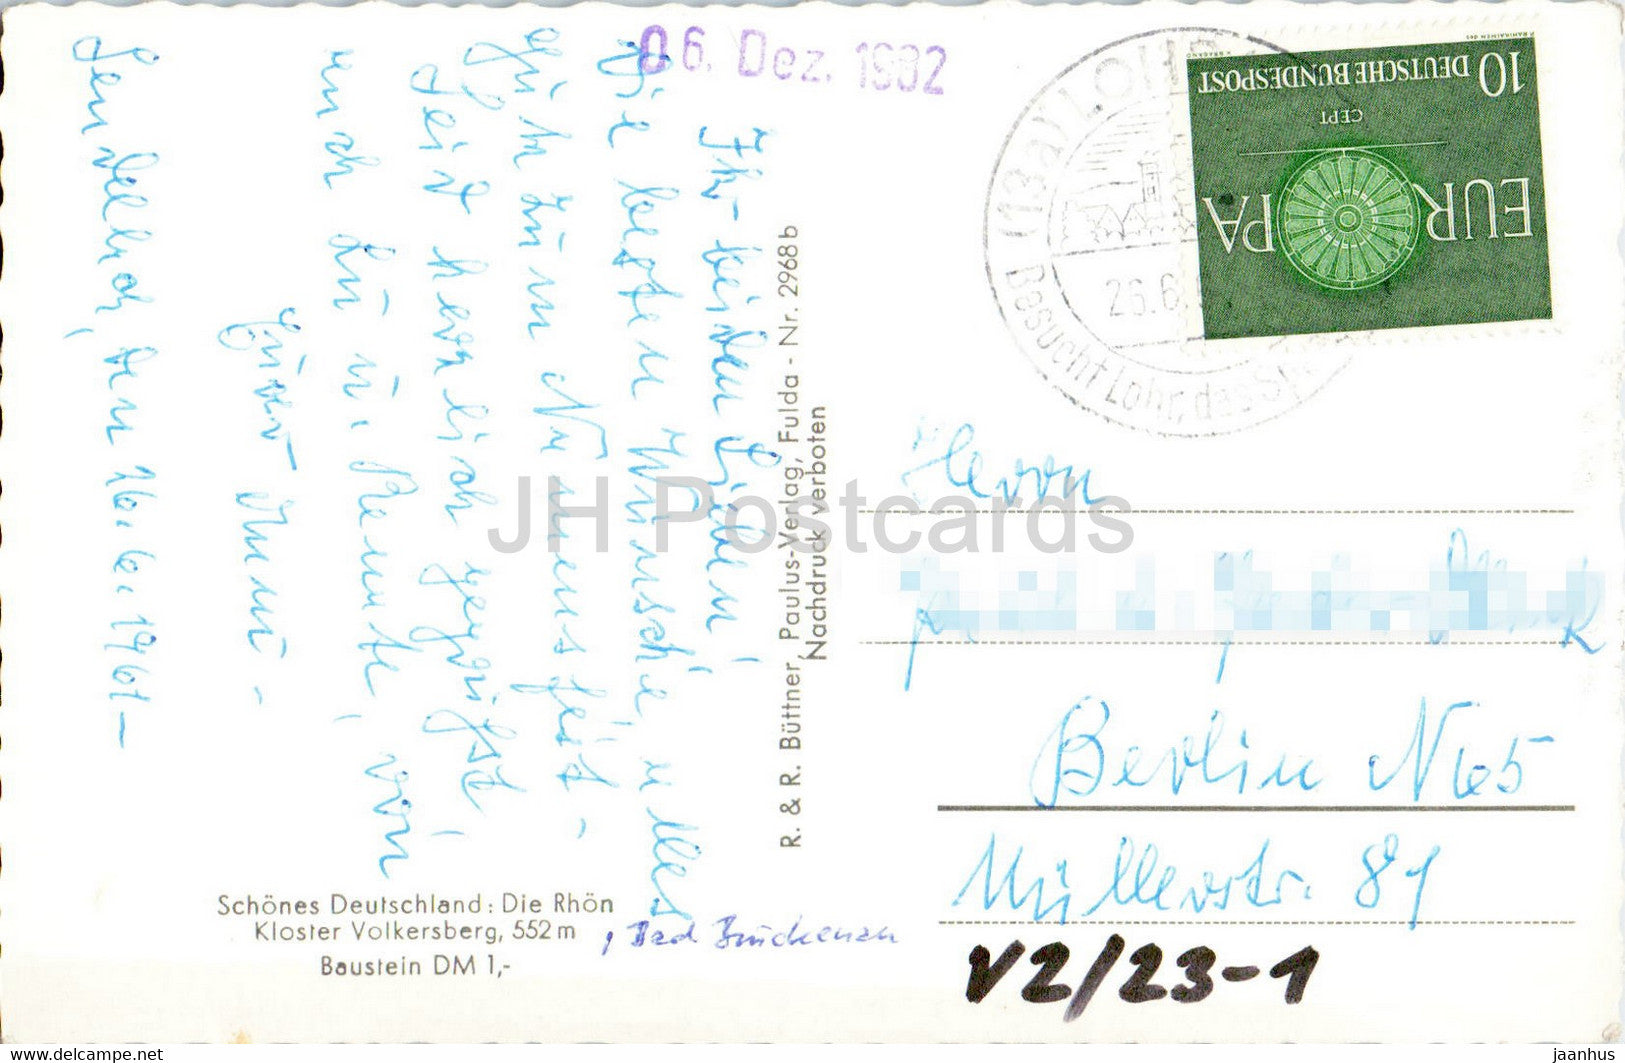 Sendelbach, den 26.6.1961–
Ihr beiden Lieben!
Die besten Wünsche, u alles
Gute zum Namensfest-
Seid herzlich gegrüsst,
auch zu u. Renate, von
Eurer Immi-
06. Dez. 1982
Schönes Deutschland: Die Rhön
Kloster Volkersberg, 552 m
, Bad Brückenau
Baustein DM 1,-
R. & R. Büttner, Paulus-Verlag, Fulda - Nr. 2968 b
Nachdruck verboten
(13a) LOHR
26.6.
Besucht Lohr, das
10 DEUTSCHE BUNDESPOST
CEPT
EUROPA
Herrn
Berlin N 65
Müllerstr. 81
V2/23-1
JH Postcards
www.delcampe.net
jaanhus